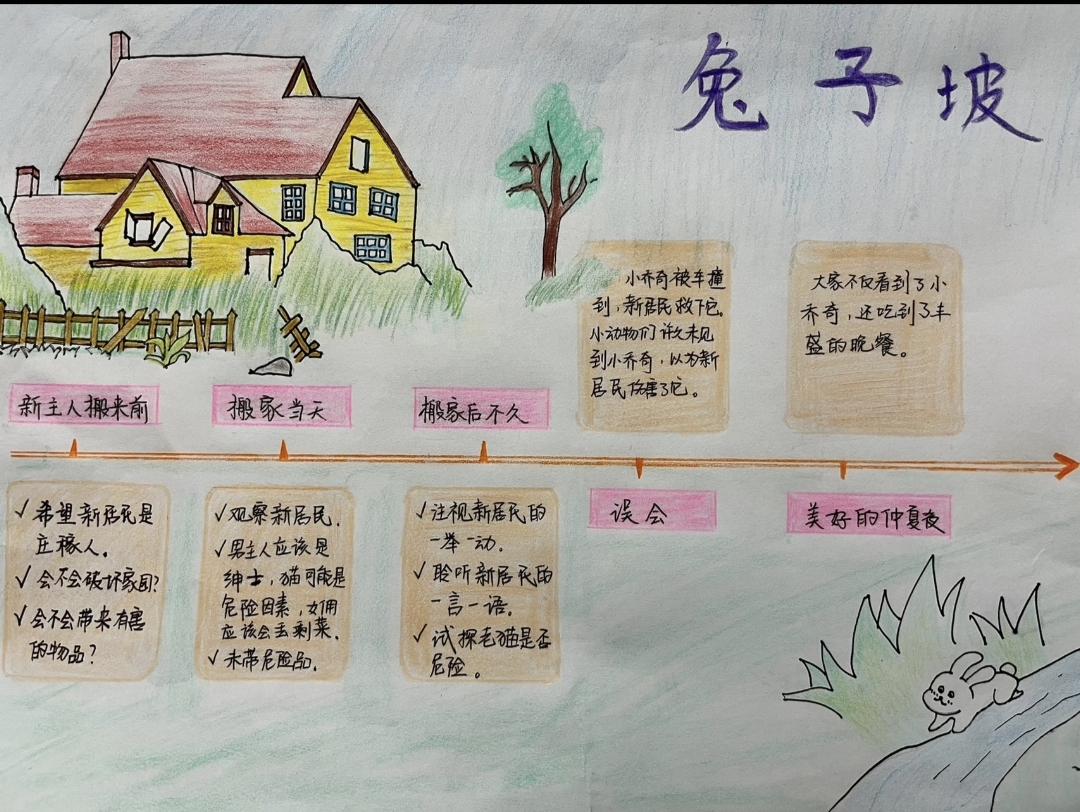 兔子坡
小乔奇被车撞
到，新居民救下它。
小动物们许久未见
到小乔奇，以为新
居民伤害了它。
大家不仅看到了小
乔奇，还吃到了丰
盛的晚餐。
新主人搬来前
搬家当天
搬家后不久
误会
美好的仲夏夜
✓希望新居民是
庄稼人。
✓会不会破坏家园？
✓会不会带来有害
的物品？
✓观察新居民。
✓男主人应该是
绅士，猫可能是
危险因素，女佣
应该会丢剩菜。
✓未带危险品。
✓注视新居民的
一举一动。
✓聆听新居民的
一言一语。
✓试探老猫是否
危险。